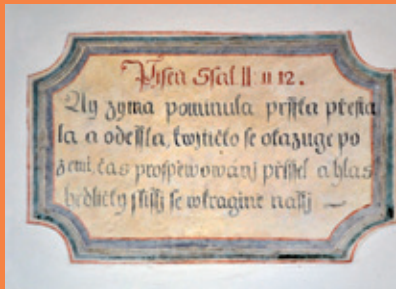 Pjseň Šal. II. 11 12.
Ay zyma pominula prſſka přeſta
la a odeſſla, kwjtičko ſe okazuge po
zemi, čas proſpěwowanj přiſſel a hlas
hrdličky ſliſſj ſe w kragině naſſj —